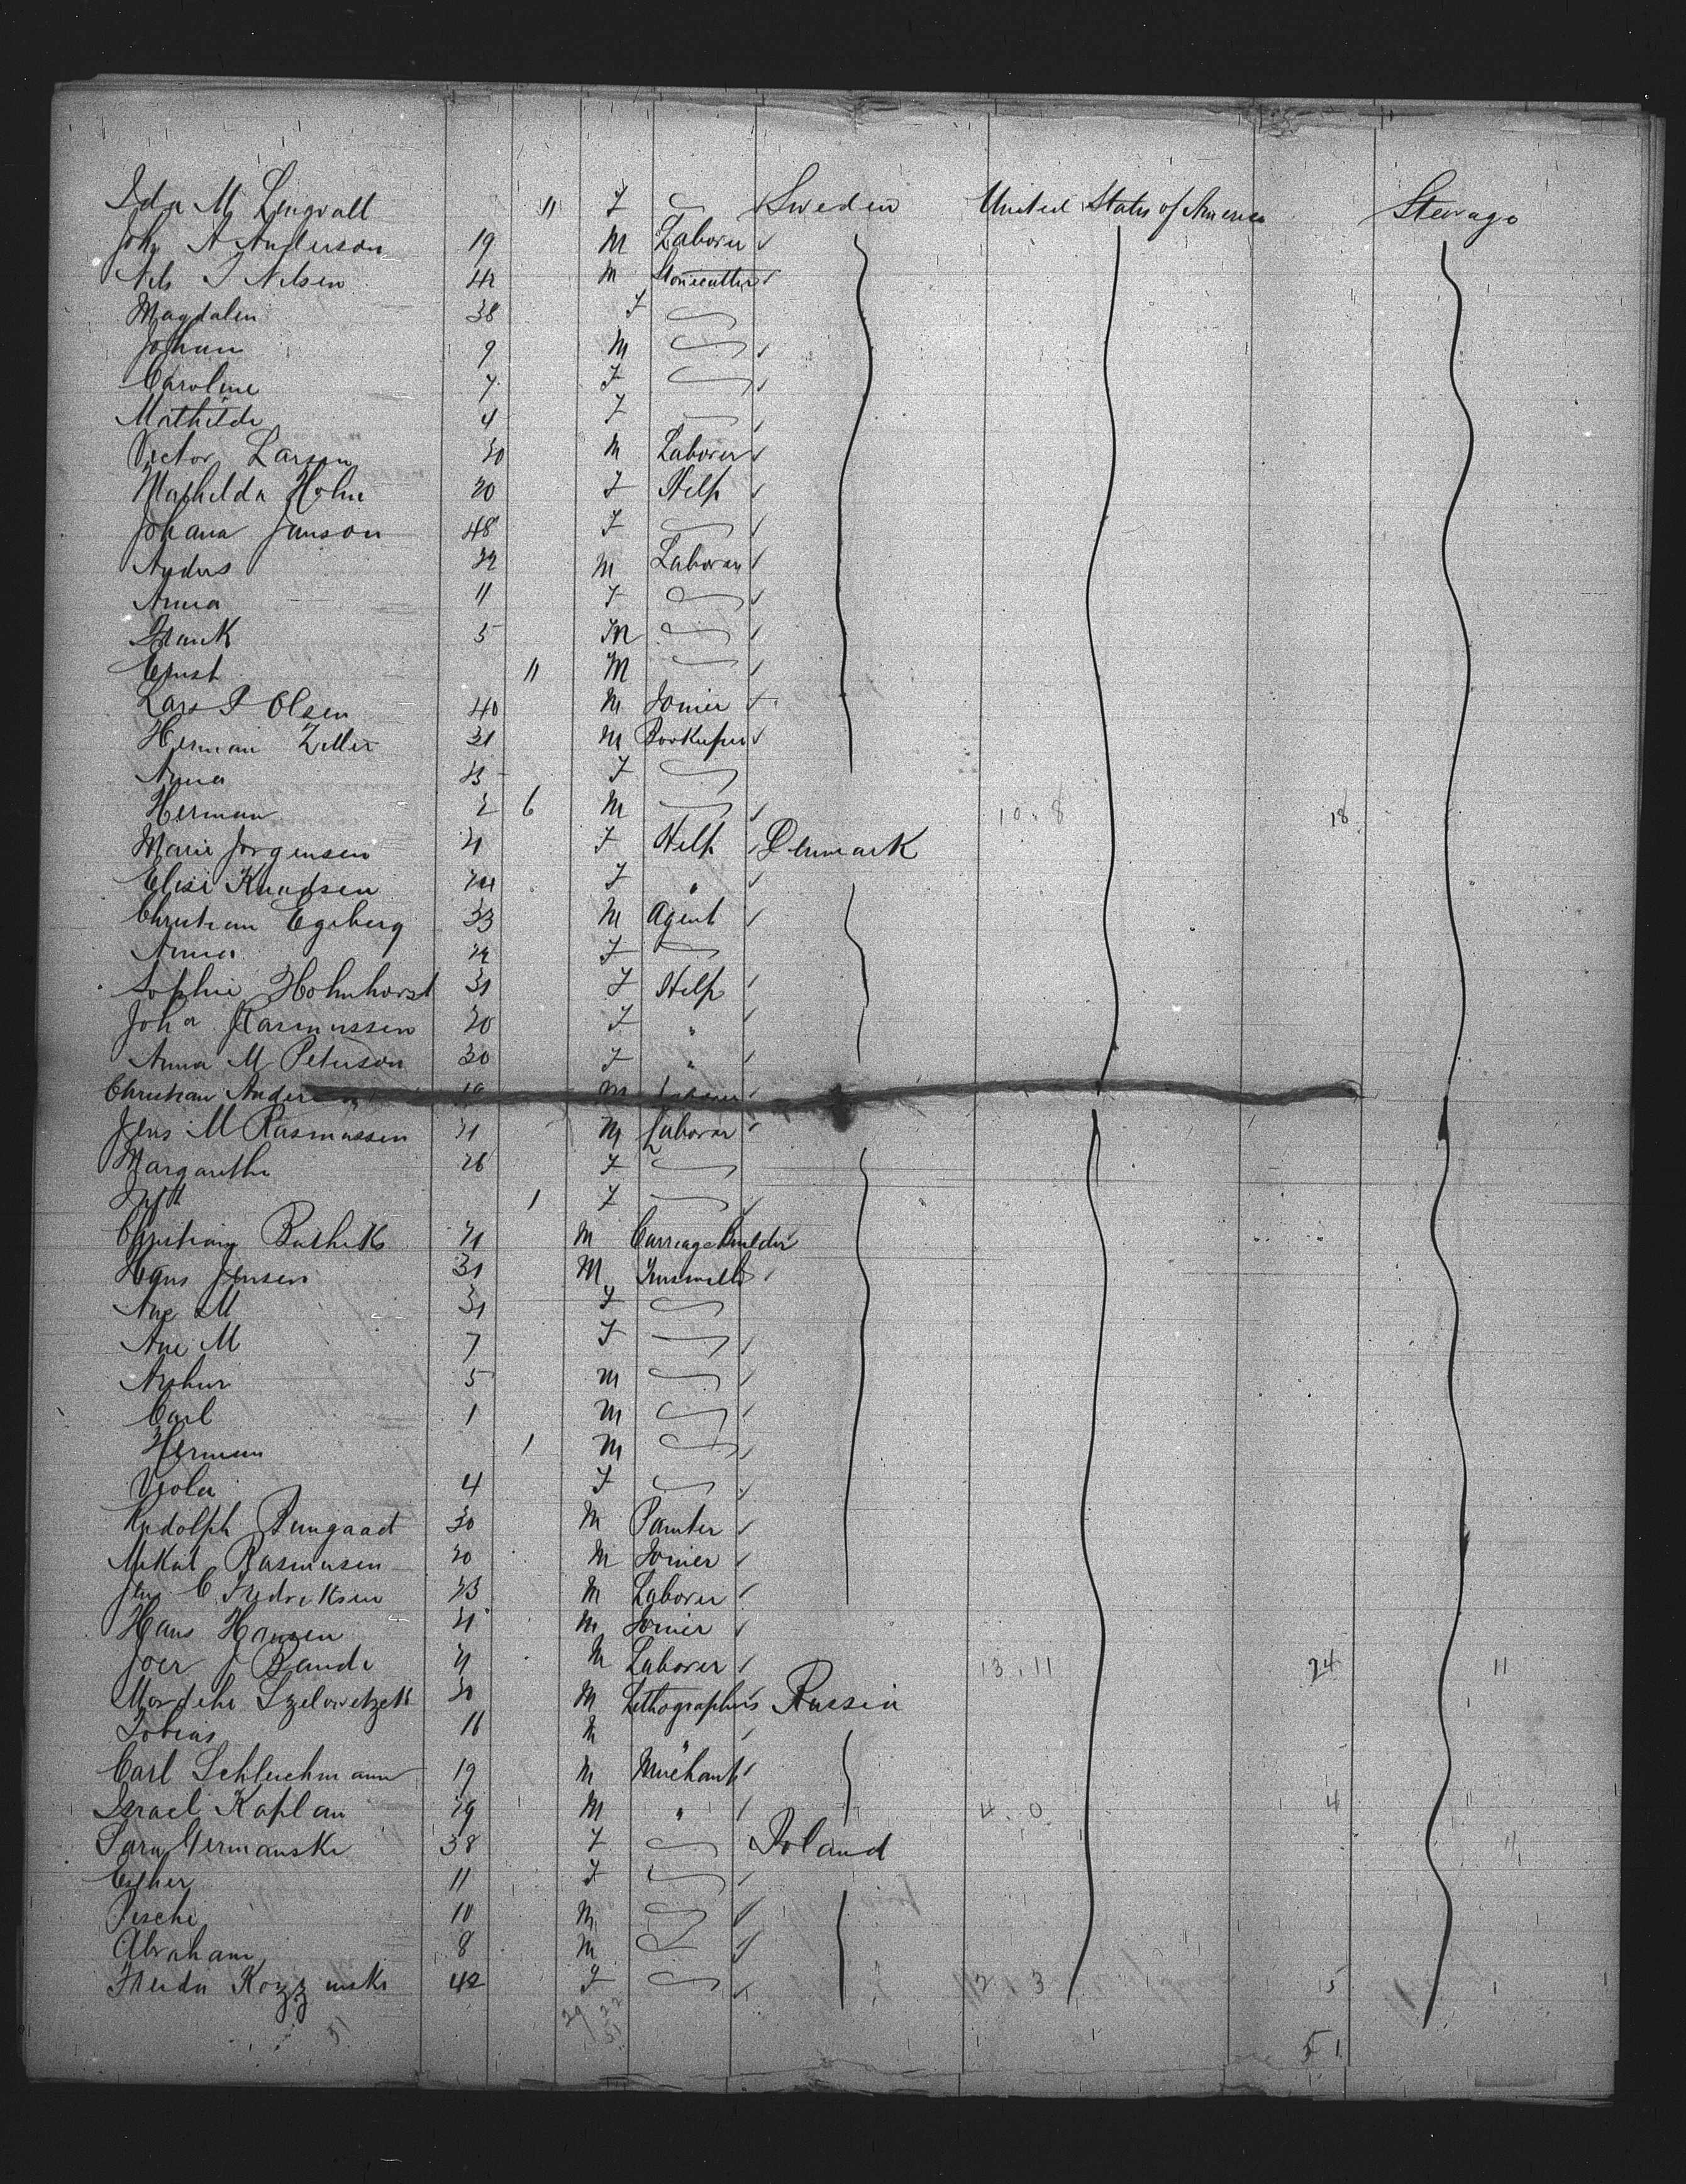 Ida M Lengvalt 11 F Sweden United States of America Steerage
John A Anderson 19 M Laborer
Nils J Nilsen 42 M Stonecutter
Magdalen 38 F
Johan 9 M
Caroline 7 F
Mathilde 4 F
Victor Larson 20 M Laborer
Mathilda Holm 20 F Help
Johana Janson 48 F
Anders 22 M Laborer
Anna 11 F
Frank 5 M
Ernst 11 M
Lars P Olsen 40 M Joiner
Herman Ziller 31 M Bookeeper
Anna 23 F
Herman 2 6 M 10. 8 18
Marie Jorgensen 21 F Help Denmark
Elise Knudsen 24 F "
Christian Egeberg 33 M Agent
Anna 22 F
Sophie Hohnhorst 31 F Help
Joh a Rasmussen 20 F "
Anna M Peterson 30 F "
Christian Anderson 19 M Laborer
Jens M Rasmussen 21 M Laborer
Margarethe 26 F
1 F
Christian 21 M Carriagebuilder
Hans Jensen 31 M
Ane M 31 F
Ane M 7 F
Arthur 5 M
Carl 1 M
Herman 1 M
Viola 4 F
Rudolph Bungaad 30 M Painter
Mikal Rasmusen 20 M Joiner
Jens C Fredriksen 23 M Laborer
Hans Hansen 21 M Joiner
J Bande 21 M Laborer 13. 11 24 11
Mordche 30 M Lithographers Russia
Tobias 16 M "
Carl Schleichmann 19 M Merchant
Israel Kaplan 29 M " 4. 0 4
Sara Germanski 38 F Poland
Esther 11 F
Pesche 10 M
Abraham 8 M
Freida Kozzinski 42 F 2. 3 5 1
51 29/22 51
51